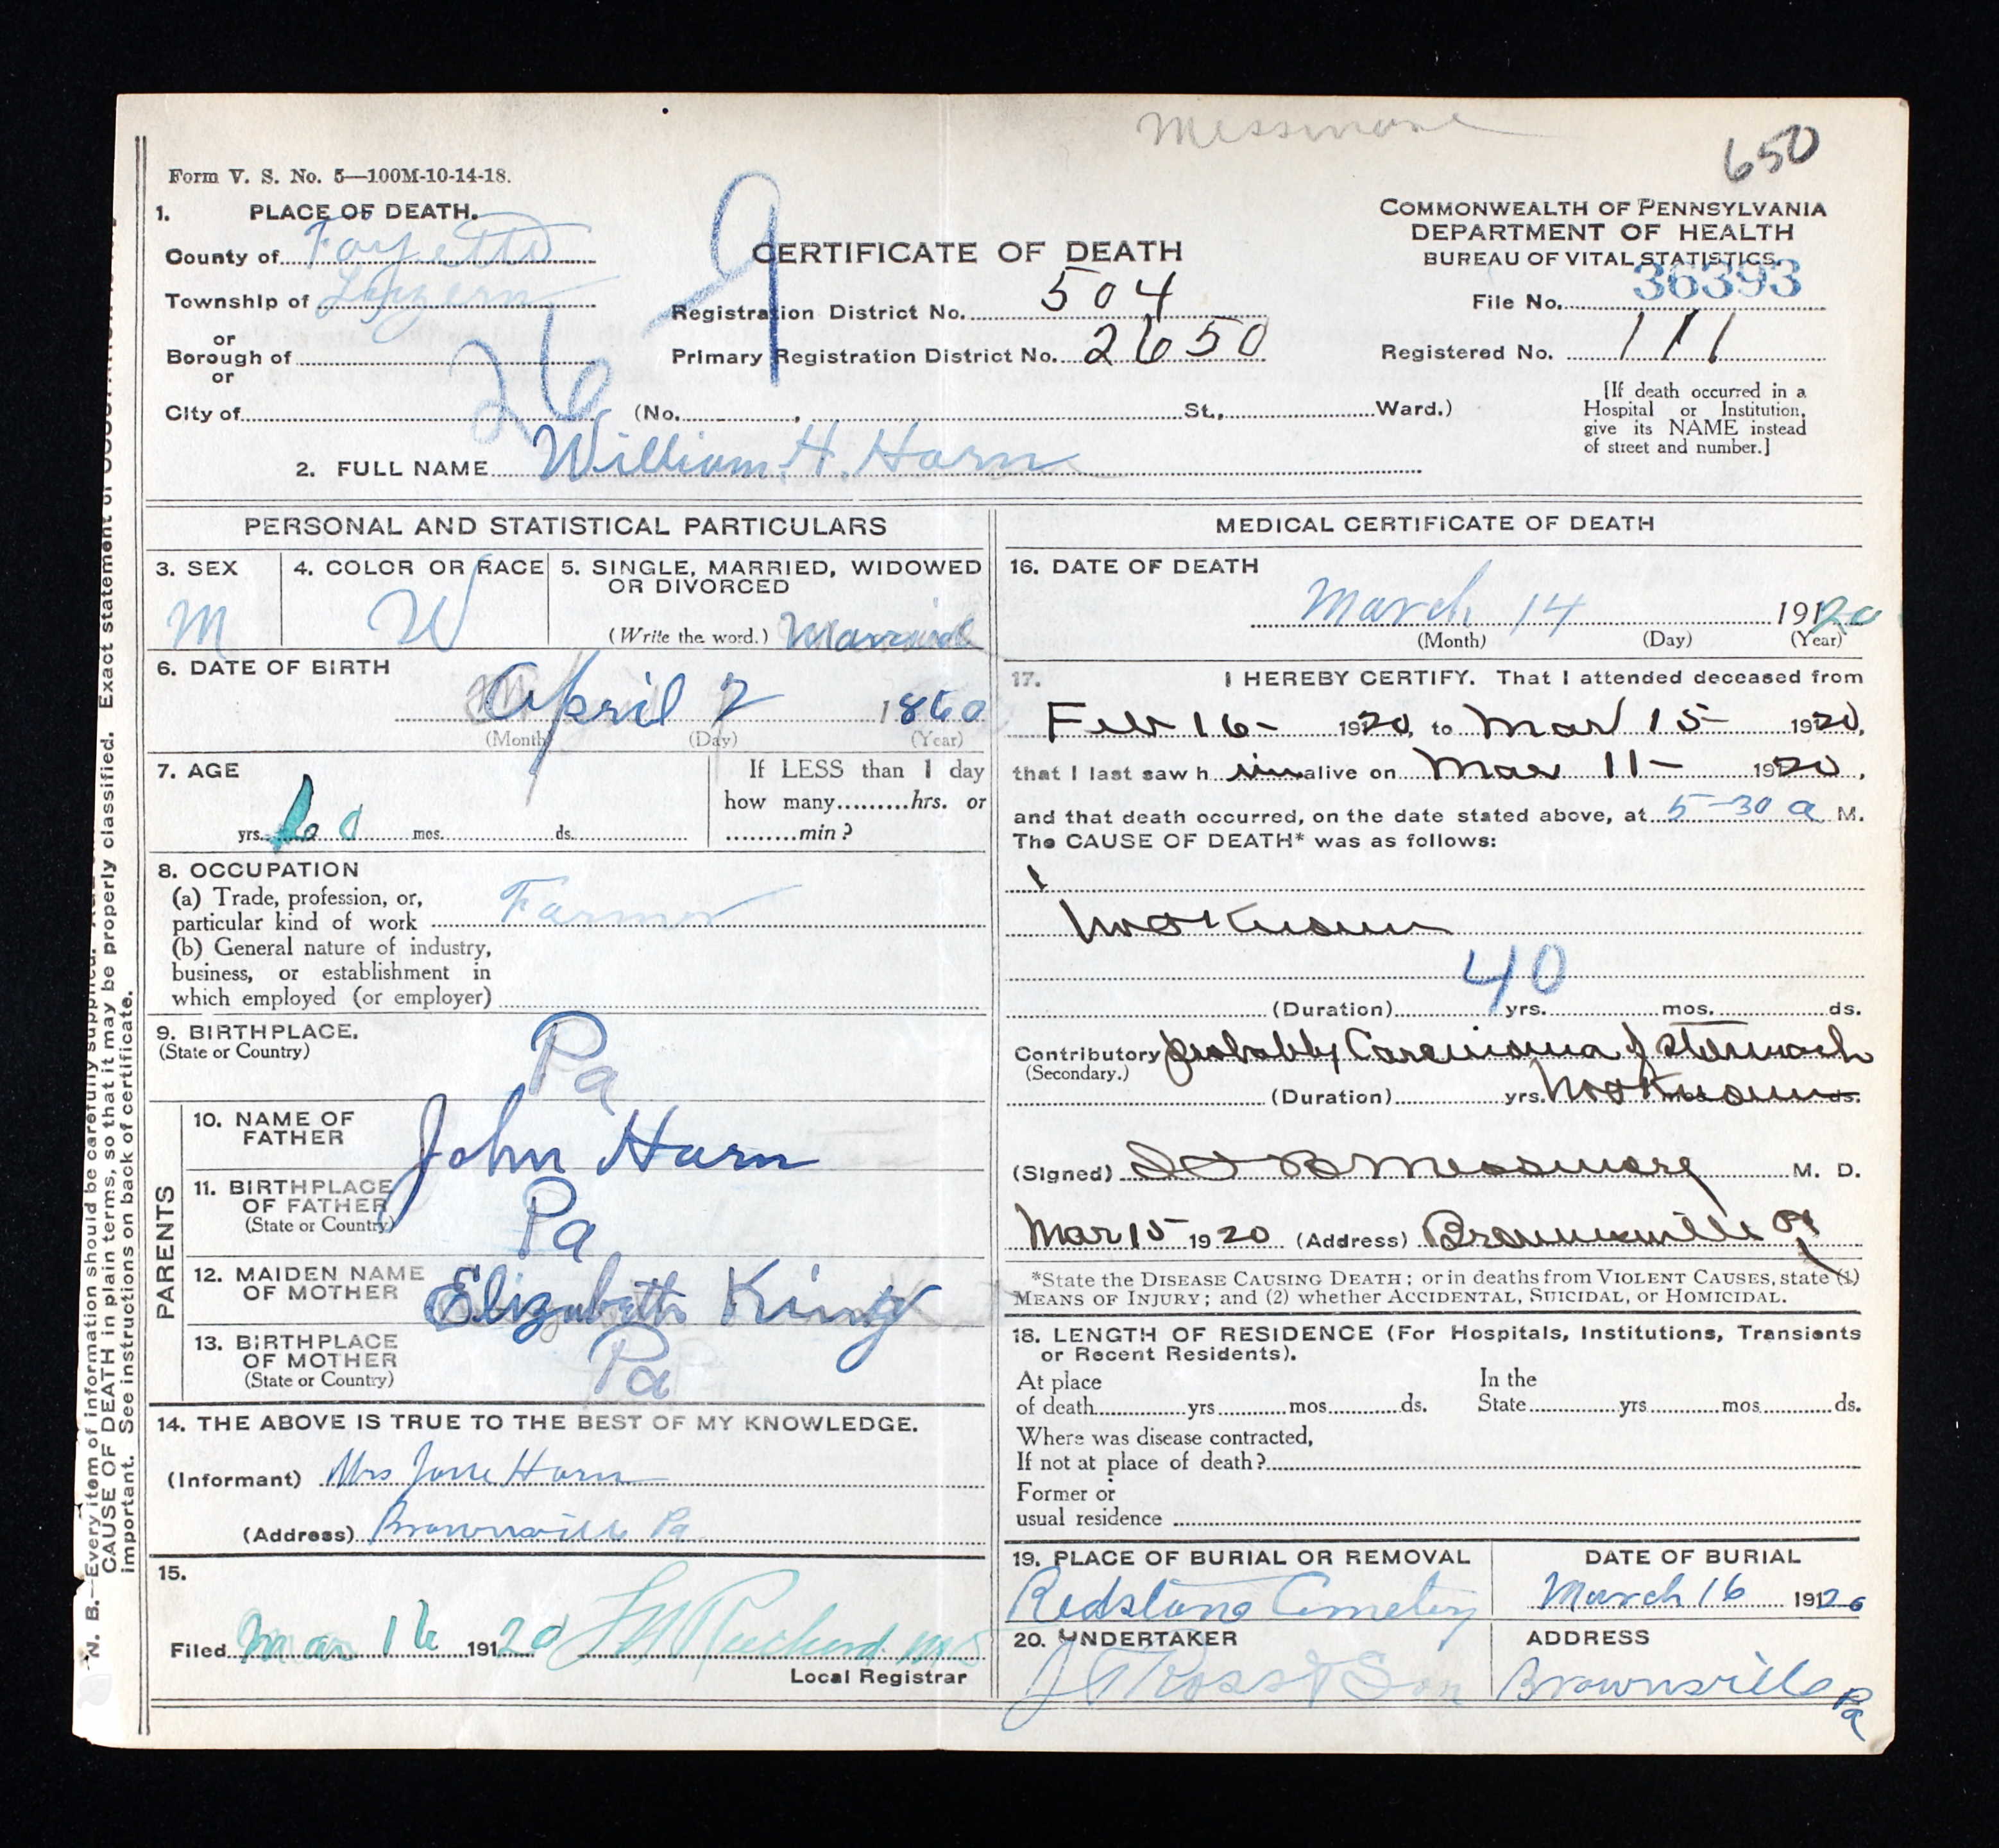 Messmore
650
Form V. S. No. 5—100M-10-14-18.
1. PLACE OF DEATH.
County of Fayette
Township of Luzern
or
Borough of
or
City of
26
9
CERTIFICATE OF DEATH
Registration District No. 504
Primary Registration District No. 2650
(No. , St., Ward.)
COMMONWEALTH OF PENNSYLVANIA
DEPARTMENT OF HEALTH
BUREAU OF VITAL STATISTICS.
File No. 36393
Registered No. 111
[If death occurred in a
Hospital or Institution,
give its NAME instead
of street and number.]
2. FULL NAME William. H. Horn
PERSONAL AND STATISTICAL PARTICULARS
3. SEX
M
4. COLOR OR RACE
W
5. SINGLE, MARRIED, WIDOWED
OR DIVORCED
(Write the word.) Married
6. DATE OF BIRTH
April 2 1860
(Month) (Day) (Year)
7. AGE
yrs. 60 mos. ds.
If LESS than 1 day
how many hrs. or
min?
8. OCCUPATION
(a) Trade, profession, or,
particular kind of work Farmer
(b) General nature of industry,
business, or establishment in
which employed (or employer)
9. BIRTHPLACE.
(State or Country)
Pa
PARENTS
10. NAME OF
FATHER
John Horn
11. BIRTHPLACE
OF FATHER
(State or Country)
Pa
12. MAIDEN NAME
OF MOTHER
Elizabeth King
13. BIRTHPLACE
OF MOTHER
(State or Country)
Pa
14. THE ABOVE IS TRUE TO THE BEST OF MY KNOWLEDGE.
(Informant) Mrs Jane Horn
(Address) Brownsville Pa
15.
Filed Mar 16 191 20
Local Registrar
MEDICAL CERTIFICATE OF DEATH
16. DATE OF DEATH
March 14 191 20
(Month) (Day) (Year)
17. I HEREBY CERTIFY. That I attended deceased from
Feb 16- 1920, to Mar 15- 1920,
that I last saw h im alive on Mar 11- 1920,
and that death occurred, on the date stated above, at 5-30 a M.
The CAUSE OF DEATH* was as follows:
not Known
40
(Duration) yrs. mos. ds.
Contributory probably Carcinoma of stomach
(Secondary.)
(Duration) yrs. not Known ds.
(Signed) Messmore M. D.
Mar 15 1920 (Address) Brownsville Pa
*State the DISEASE CAUSING DEATH; or in deaths from VIOLENT CAUSES, state (1)
MEANS OF INJURY; and (2) whether ACCIDENTAL, SUICIDAL, or HOMICIDAL.
18. LENGTH OF RESIDENCE (For Hospitals, Institutions, Transients
or Recent Residents).
At place
of death yrs mos ds.
In the
State yrs mos ds.
Where was disease contracted,
If not at place of death?
Former or
usual residence
19. PLACE OF BURIAL OR REMOVAL
Redstone Cemetery
DATE OF BURIAL
March 16 191 20
20. UNDERTAKER
J T Ross & Son
ADDRESS
Brownsville Pa
N. B.—Every item of information should be carefully supplied. Exact statement of
CAUSE OF DEATH in plain terms, so that it may be properly classified.
important. See instructions on back of certificate.